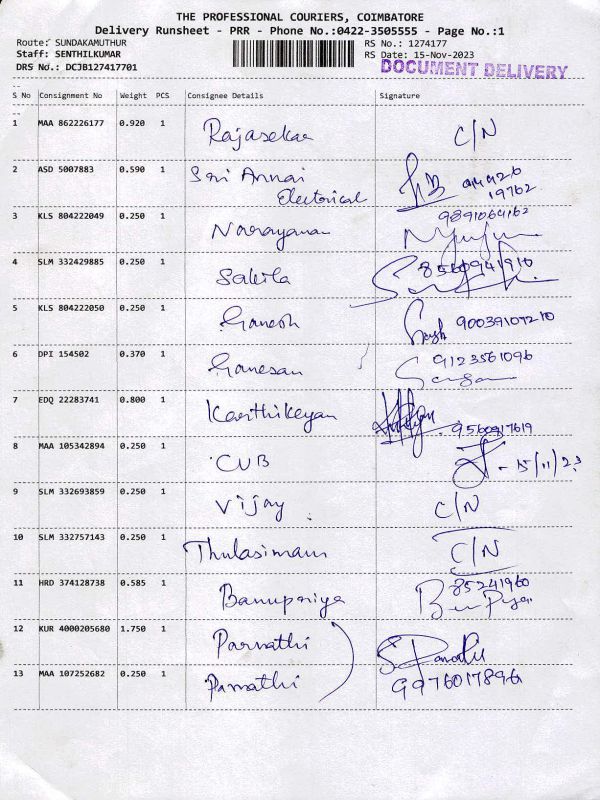 THE PROFESSIONAL COURIERS, COIMBATORE
Delivery Runsheet - PRR - Phone No.:0422-3505555 - Page No.:1
Route: SUNDAKAMUTHUR RS No.: 1274177
Staff: SENTHILKUMAR RS Date: 15-Nov-2023
DRS No.: DCJB127417701 DOCUMENT DELIVERY
S No Consignment No Weight PCS Consignee Details Signature
1 MAA 862226177 0.920 1 Rajasekar C/N
2 ASD 5007883 0.590 1 Sri Annai
Electrical 19762
3 KLS 804222049 0.250 1 Narayanan 9891064162
4 SLM 332429885 0.250 1 Sakila
5 KLS 804222050 0.250 1 Ganesh
6 DPI 154502 0.370 1 Ganesan 9123561096
7 EDQ 22283741 0.800 1 Karthikeyan
8 MAA 105342894 0.250 1 CUB - 15/11/23
9 SLM 332693859 0.250 1 Vijay C/N
10 SLM 332757143 0.250 1 Thulasimani C/N
11 HRD 374128738 0.585 1 Banupriya 85241960
12 KUR 4000205680 1.750 1 Parvathi
13 MAA 107252682 0.250 1 Parvathi